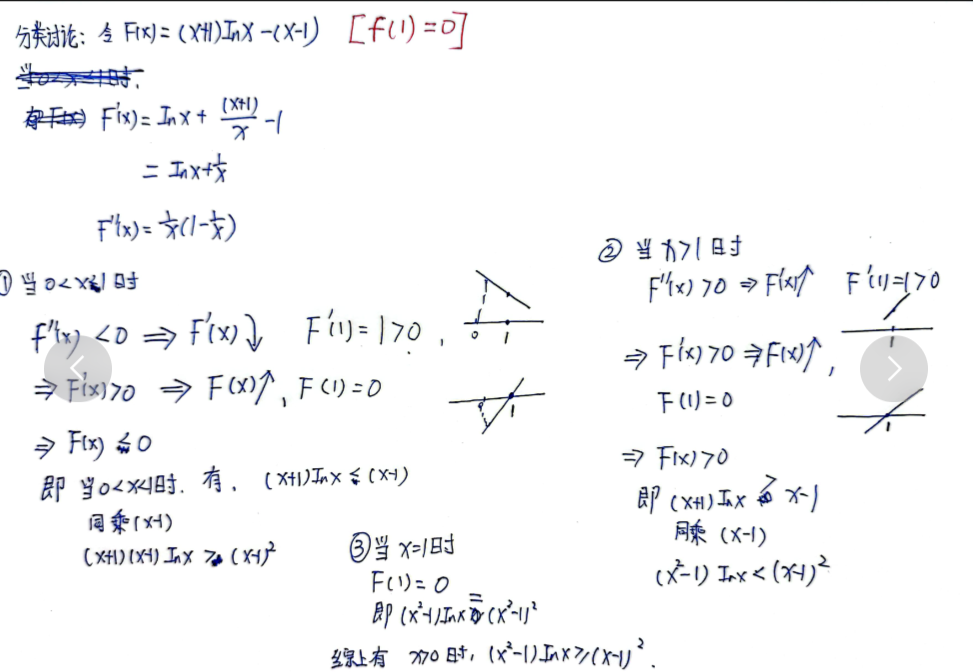 分类讨论: 令 F(x) = (x+1)lnx-(x-1) [f(1)=0]
当0<x<1时,
F'(x) = lnx + (x+1)/x -1
= lnx+1/x
F''(x) = 1/x(1-1/x)
① 当 0<x≤1 时
f''(x) <0 ⇒ F'(x)↓ F'(1)=1>0,
0 1
⇒ F'(x)>0 ⇒ F(x)↑, F(1)=0
1
⇒ F(x) ≤ 0
即 当0<x<1时. 有, (x+1)lnx ≤ (x-1)
同乘(x-1)
(x+1)(x-1) lnx ≥ (x-1)²
② 当 x>1 时
F''(x) >0 ⇒ F'(x)↑ F'(1)=1>0
1
⇒ F'(x)>0 ⇒F(x)↑,
F(1)=0
1
⇒ F(x)>0
即 (x+1) lnx > x-1
同乘 (x-1)
(x²-1) lnx < (x-1)²
③当 x=1时
F(1) = 0
即 (x²-1)lnx = (x²-1)²
综上有 x>0 时, (x²-1) lnx ≥ (x-1)².